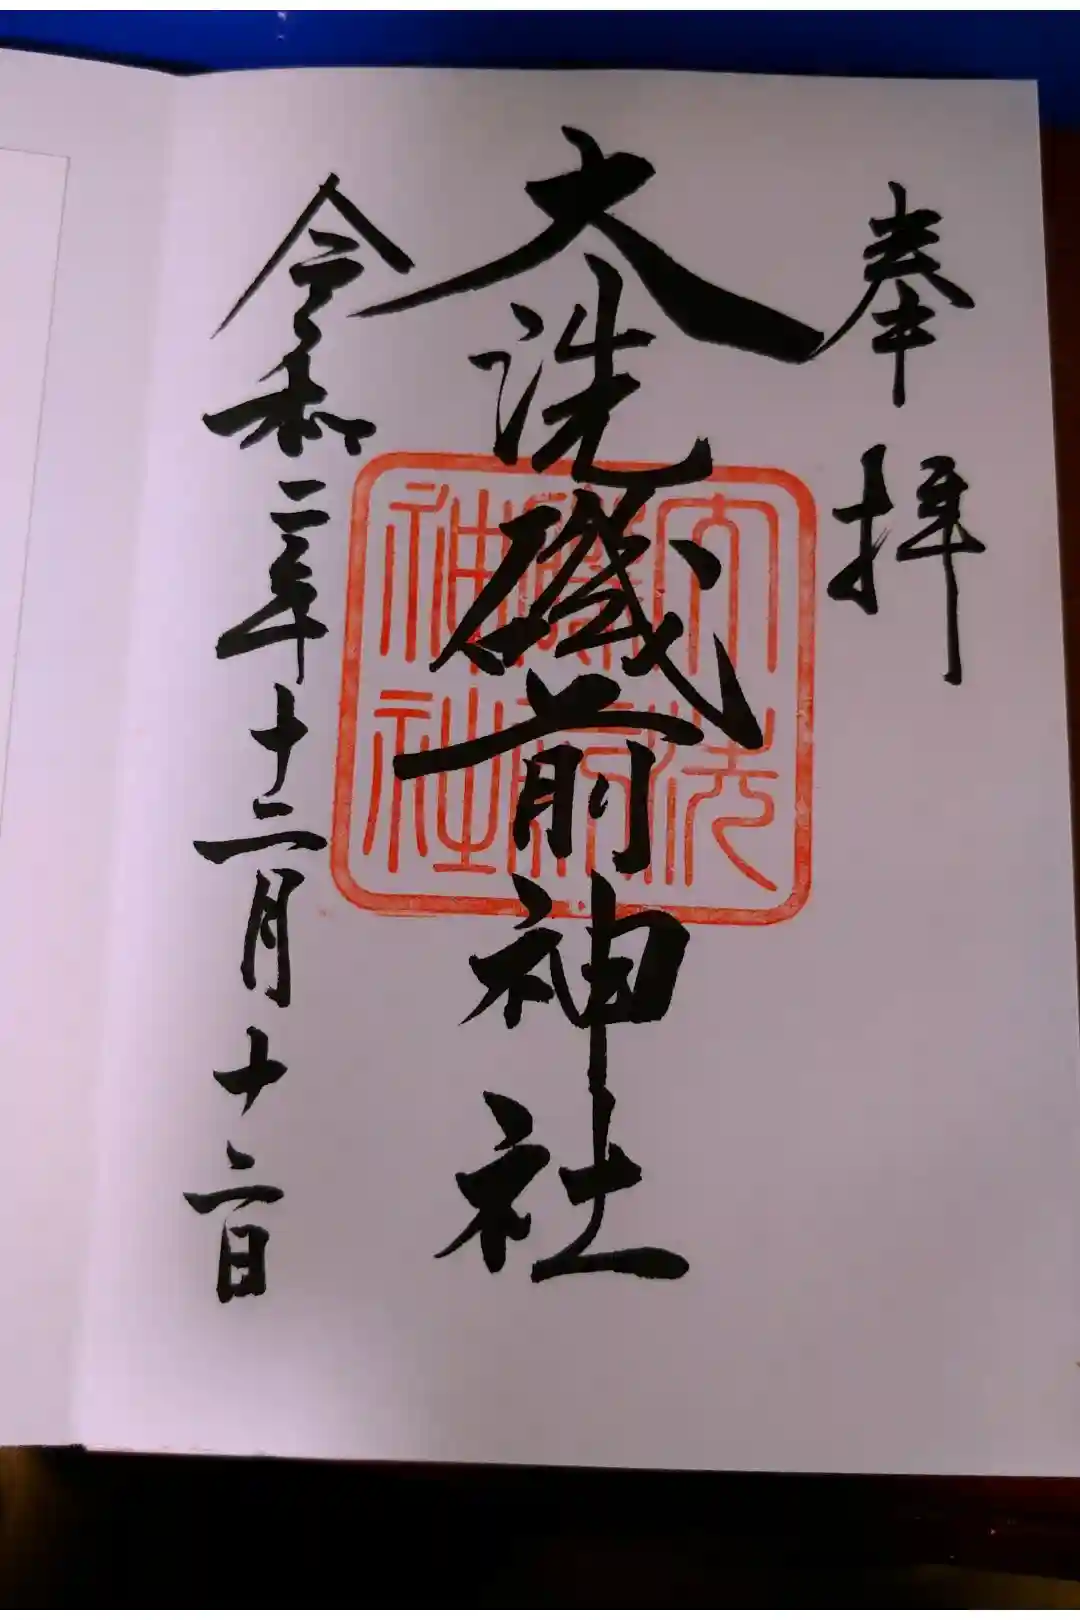 奉拝
大洗磯前神社
大洗磯前神社
令和二年十二月十二日